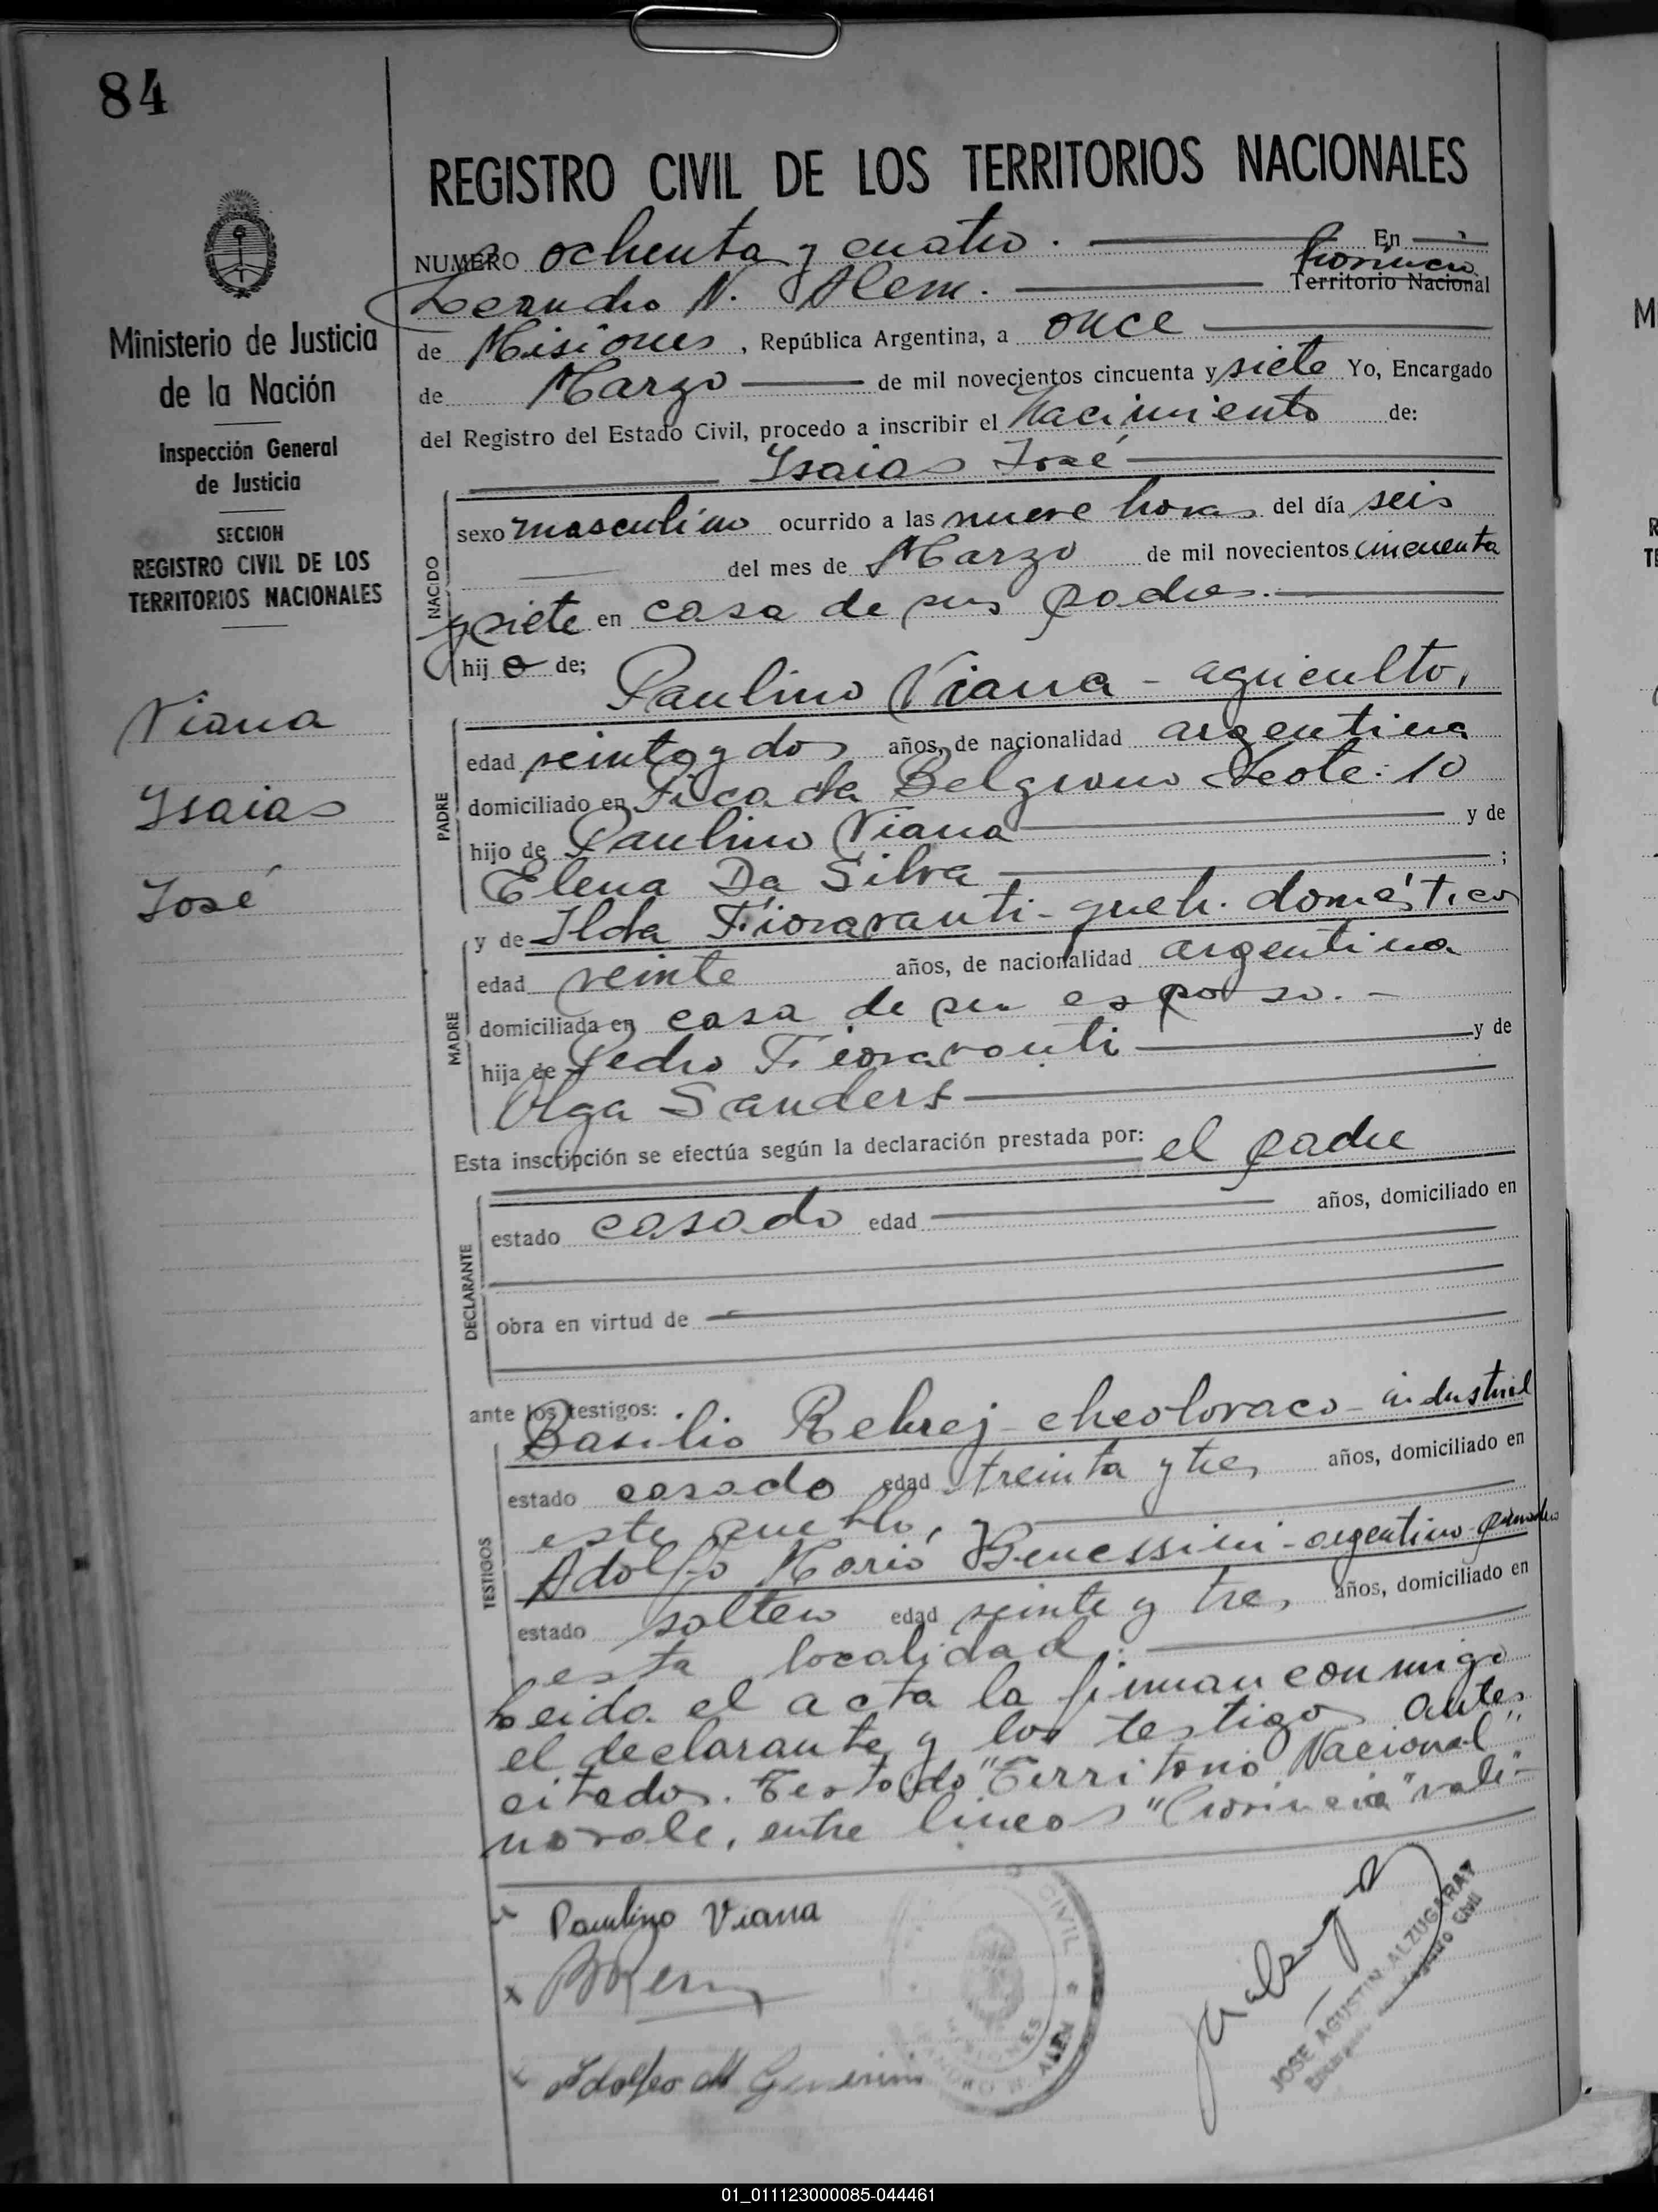 84
REGISTRO CIVIL DE LOS TERRITORIOS NACIONALES
NUMERO ochenta y cuatro. En
Provincia
Leandro N. Alem. Territorio Nacional
de Misiones, República Argentina, a once
de Marzo de mil novecientos cincuenta y siete Yo, Encargado
del Registro del Estado Civil, procedo a inscribir el Nacimiento de:
Isaias José
NACIDO
sexo masculino ocurrido a las nueve horas del día seis
del mes de Marzo de mil novecientos cincuenta
y siete en casa de sus padres.
hijo de;
PADRE
Paulino Viana - agricultor,
edad veinte y dos años, de nacionalidad argentina
domiciliado en Picada Belgrano Lote: 10
hijo de Paulino Viana y de
Elena Da Silva ;
MADRE
y de Ilda Fioravanti - queh. domésticos
edad veinte años, de nacionalidad argentina
domiciliada en casa de su esposo. -
hija de Pedro Fioravanti y de
Olga Sanders
Esta inscripción se efectúa según la declaración prestada por: el padre
DECLARANTE
estado casado edad años, domiciliado en
obra en virtud de
ante los testigos:
TESTIGOS
Basilio Rehrej - checolovaco - industrial
estado casado edad treinta y tres años, domiciliado en
este pueblo, y
Adolfo Mario Genessini - argentino
estado soltero edad veinte y tres, años, domiciliado en
esta localidad.
Leida el acta la firman conmigo
el declarante y los testigos antes
citados. Testado "Territorio Nacional"
no vale, entre lineas "Provincia" vale -
Paulino Viana
Adolfo M Genesini
CIVIL
MISIONES
LEANDRO N. ALEM
JOSE AGUSTIN ALZUGARAY
Encargado del Registro Civil
Ministerio de Justicia
de la Nación
Inspección General
de Justicia
SECCION
REGISTRO CIVIL DE LOS
TERRITORIOS NACIONALES
Viana
Isaias
José
01_011123000085-044461